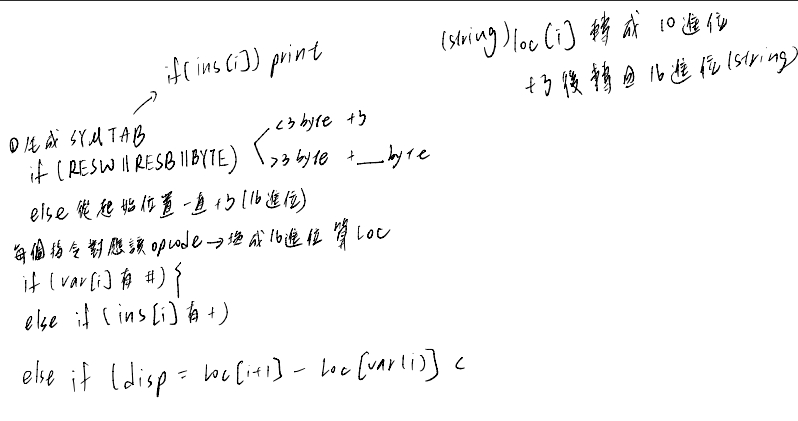 (string)loc[i] 轉成 10進位
+3後轉回16進位(string)
if(ins[i]) print
①生成 SYMTAB
if (RESW||RESB||BYTE) <3 byte +3
>3 byte + __byte
else 從起始位置一直+3(16進位)
每個指令對應該opcode→換成16進位 算LOC
if (var[i]有 #) {
else if (ins[i]有+)
else if (disp = Loc[i+1] - Loc[var(i)] <